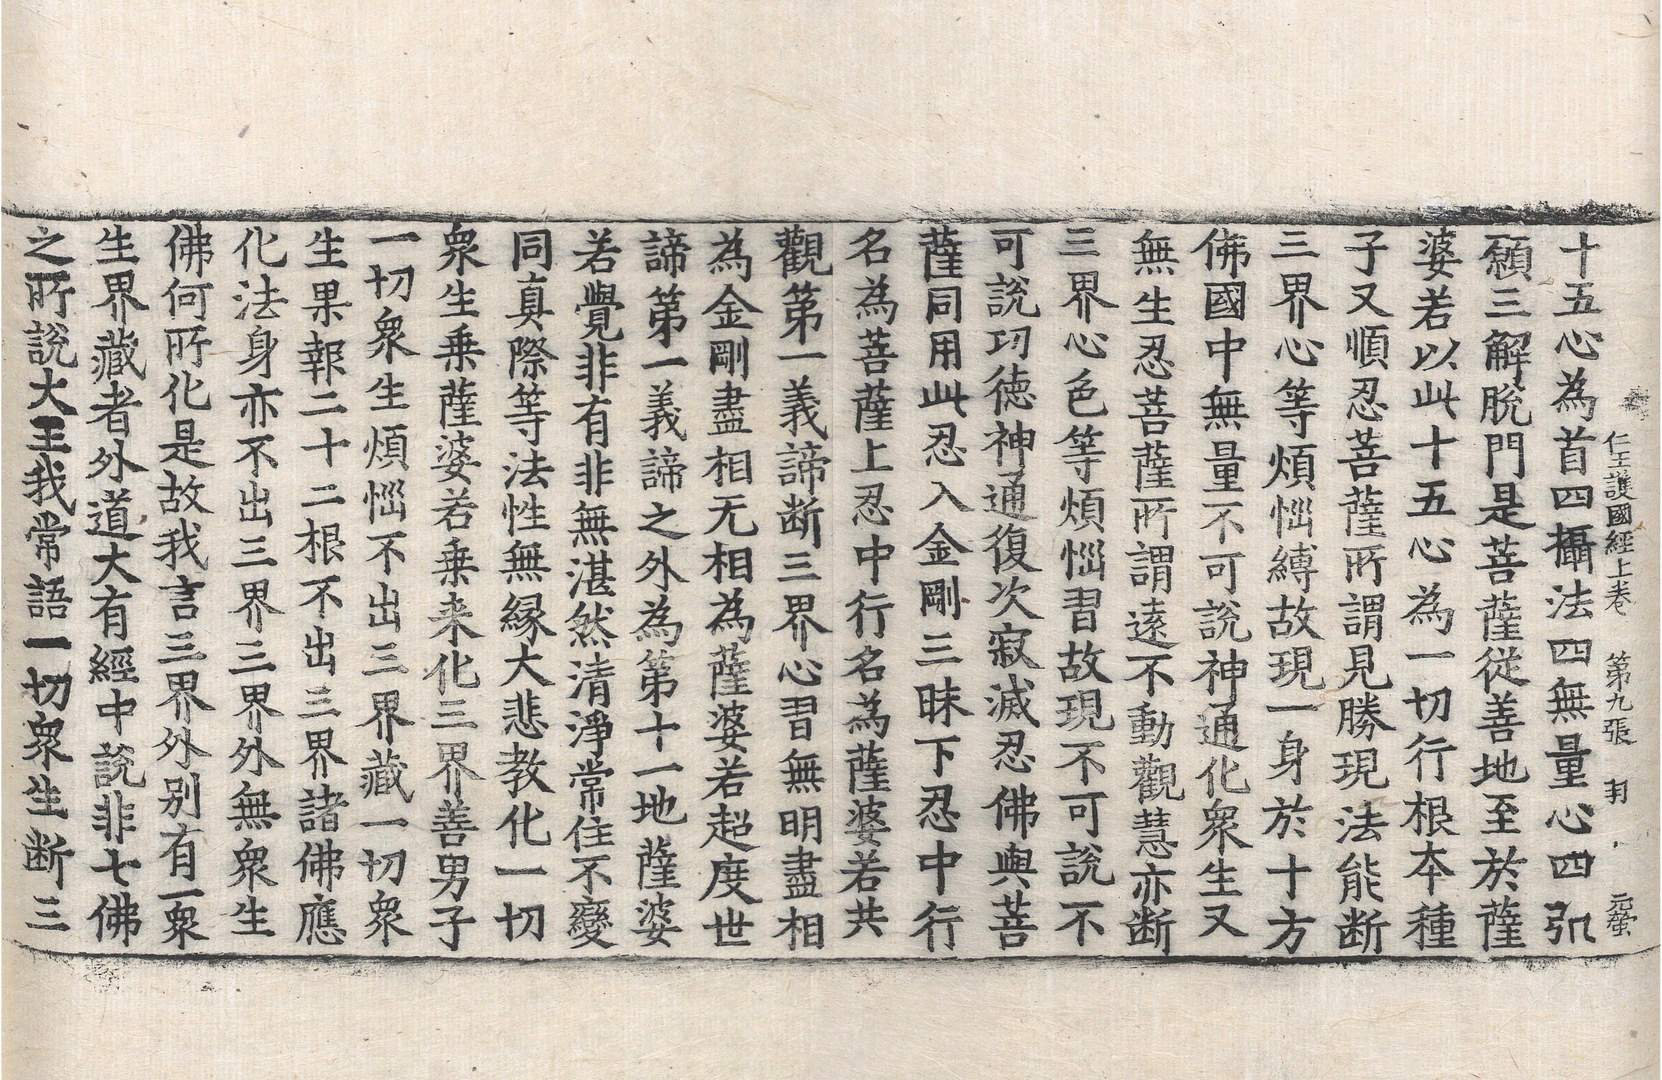 仁王護國經上卷 第九張 封 元螢
十五心為首四攝法四無量心四弘
願三解脫門是菩薩從善地至於薩
婆若以此十五心為一切行根本種
子又順忍菩薩所謂見勝現法能断
三界心等煩惱縛故現一身於十方
佛國中無量不可說神通化衆生又
無生忍菩薩所謂遠不動觀慧亦断
三界心色等煩惱習故現不可說不
可說功德神通復次寂滅忍佛與菩
薩同用此忍入金剛三昧下忍中行
名為菩薩上忍中行名為薩婆若共
觀第一義諦断三界心習無明盡相
為金剛盡相无相為薩婆若超度世
諦第一義諦之外為第十一地薩婆
若覺非有非無湛然清淨常住不變
同真際等法性無緣大悲教化一切
衆生乗薩婆若乗来化三界善男子
一切衆生煩惱不出三界藏一切衆
生果報二十二根不出三界諸佛應
化法身亦不出三界三界外無衆生
佛何所化是故我言三界外別有一衆
生界藏者外道大有經中說非七佛
之所說大王我常語一切衆生断三